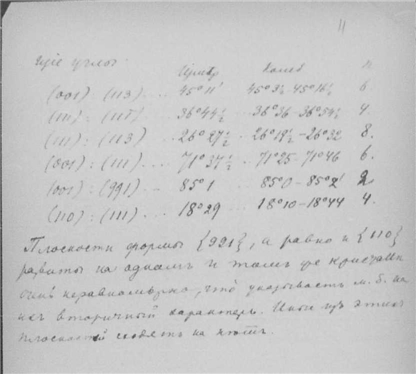 11
щіе углы:
Измѣр. Колеб. n
(001) : (113) ... 45°11' 45°3½-45°16½ 6
(111) : (11̅1̅) ... 36°44½ 36°36-36°54½ 4.
(111) : (113) ... 26°27½ 26°19½-26°32 8.
(001) : (111) ... 71°37½ 71°25-71°46 6.
(001) : (991) ... 85°1 85°0-85°2' 2
(110) : (111) ... 18°29 18°10-18°44 4.
Плоскости формы {991}, и равно и {110}
развиты на одномъ и томъ же кристалл
очень неравномѣрно, что указываетъ м. б. на
ихъ вторичный характеръ. Иные изъ этихъ
плоскостей сходятъ на нѣтъ.